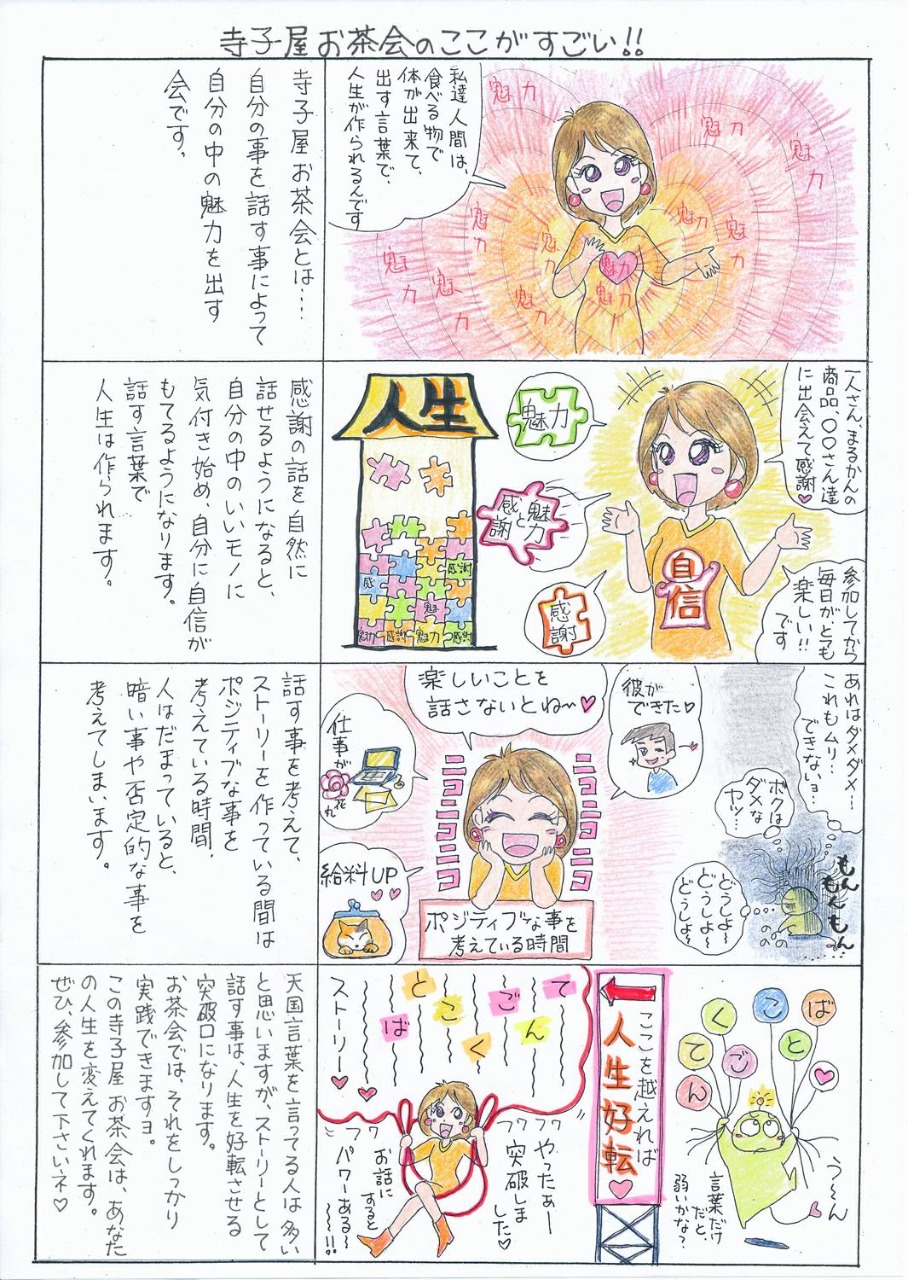 寺子屋お茶会のここがすごい!!
私達人間は、
食べる物で
体が出来て、
出す言葉で、
人生が作られるんです
魅力
魅力
魅力
魅力
魅力
魅力
魅力
魅力
魅力
魅力
魅力
魅力
寺子屋お茶会とは…
自分の事を話す事によって
自分の中の魅力を出す
会です。
一人さん、まるかんの
商品、〇〇さん達
に出会えて感謝♥
参加してから
毎日が、とても
楽しい!!
です
自信
魅力
感謝と魅力
感謝
人生
感謝
感
魅
魅力
感謝
魅力
感謝
感謝の話を自然に
話せるようになると、
自分の中のいいモノに
気付き始め、自分に自信が
もてるようになります。
話す言葉で
人生は作られます。
あれはダメダメ…
これもムリ…
できないョ…
ボクは
ダメな
ヤツ…
どうしよ〜
どうしよ〜
どうしよ〜
もん
もん
もん
彼が
できた♥
楽しいことを
話さないとね〜♥
ニコニコニコ
ニコニコニコ
仕事が
花丸
給料UP
ポジティブな事を
考えている時間
話す事を考えて、
ストーリーを作っている間は
ポジティブな事を
考えている時間、
人はだまっていると、
暗い事や否定的な事を
考えてしまいます。
てんごくことば
う〜ん
言葉だけ
だと、
弱いかな?
ここを越えれば
人生好転♥
てんごくことば
ストーリー♥♥
フワフワ
やったぁー
突破しま
した♡
フワフワ
お話に
すると
パワーある〜!!
天国言葉を言ってる人は多い
と思いますが、ストーリーとして
話す事は、人生を好転させる
突破口になります。
お茶会では、それをしっかり
実践できますョ。
この寺子屋お茶会は、あなた
の人生を変えてくれます。
ぜひ、参加して下さいネ♡